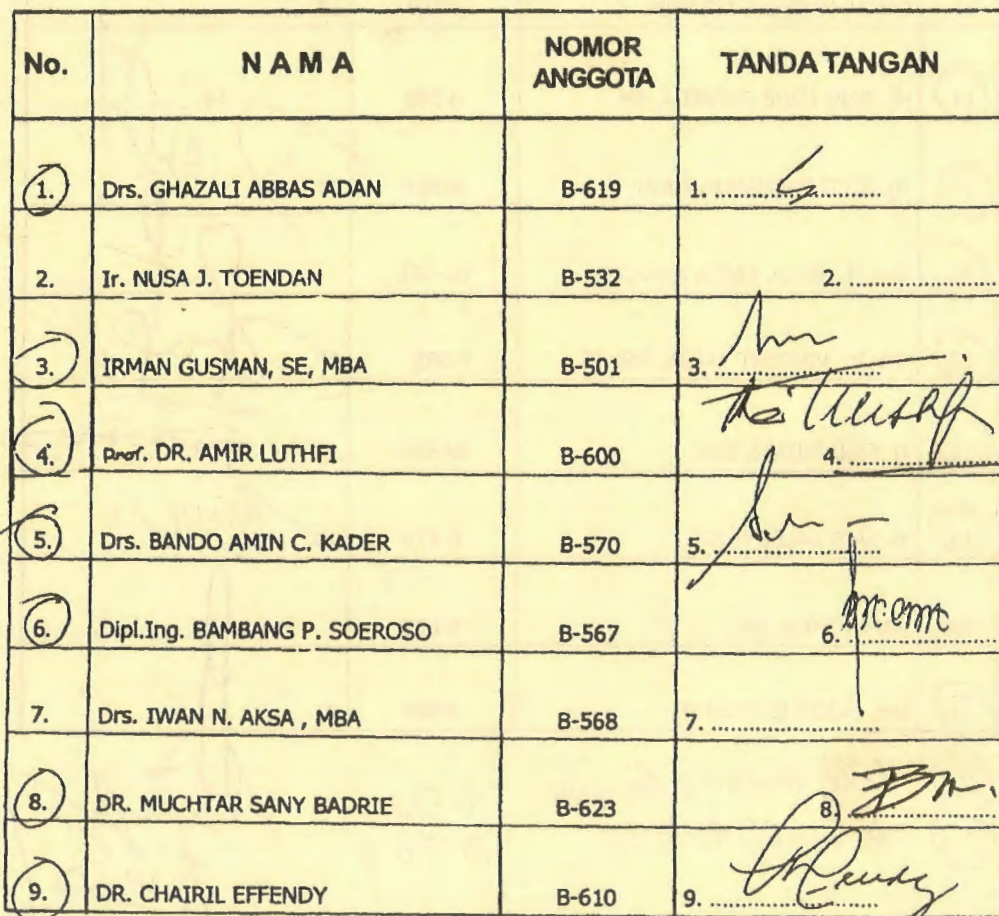 No. N A M A NOMOR ANGGOTA TANDA TANGAN
1. Drs. GHAZALI ABBAS ADAN B-619 1. ....................
2. Ir. NUSA J. TOENDAN B-532 2. ....................
3. IRMAN GUSMAN, SE, MBA B-501 3. ....................
4. Prof. DR. AMIR LUTHFI B-600 4. ....................
5. Drs. BANDO AMIN C. KADER B-570 5. ....................
6. Dipl.Ing. BAMBANG P. SOEROSO B-567 6. ....................
7. Drs. IWAN N. AKSA , MBA B-568 7. ....................
8. DR. MUCHTAR SANY BADRIE B-623 8. ....................
9. DR. CHAIRIL EFFENDY B-610 9. ....................